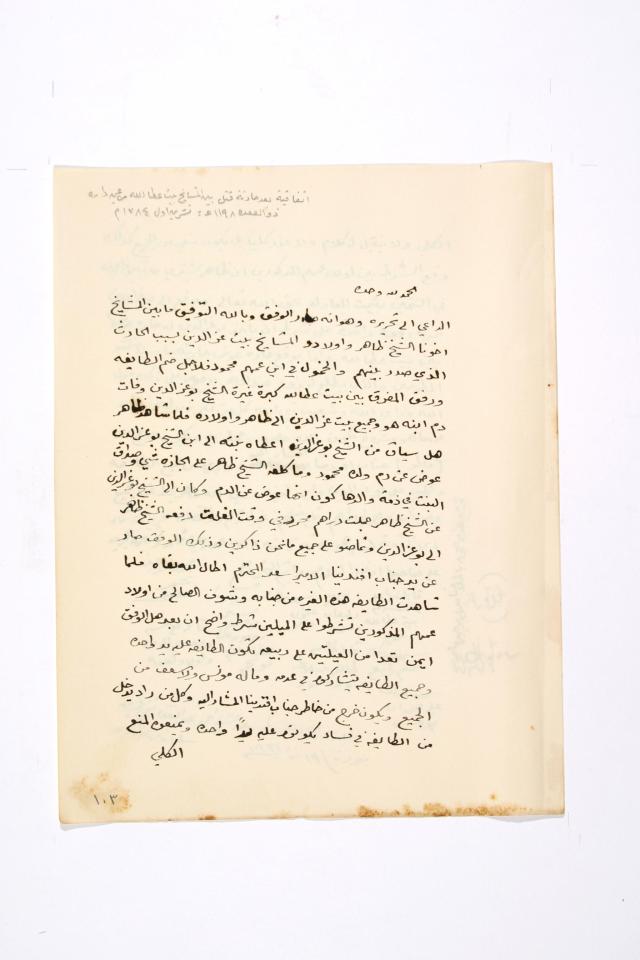 اتفاقية بعد حادثة قتل بين المشايخ بيت عطاالله من عين داره
ذو القعده ١١٩٨ هـ: تشرين اول ١٧٨٤ م
الحمد لله وحده
الداعي الى تحريره وهو انه صار الوفق وبالله التوفيق ما بين المشايخ
اخونا الشيخ ظاهر واولاده والمشايخ بيت عز الدين بسبب الحادث
الذي صدر بينهم في ابن عمهم محمود فلاجل ضم الطايفه
ورفق المفرق بين بيت عطالله كبرة غيرة الشيخ بو عز الدين وفات
دم ابنه هو وجميع بيت عز الدين الى ظاهر واولاده فلما شاهد ظاهر
هل سياق من الشيخ بو عز الدين اعطاه بنته الى ابن الشيخ بو عز الدين
عوض عن دم ولده محمود وما كلفه الشيخ ظاهر على الجازه شي وصداق
البنت في ذمة والدها كون انها عوض عن الدم وكان الى الشيخ بو عز الدين
عن الشيخ ظاهر جبلت دراهم في وقت الفلت دفعه الشيخ ظاهر
الى بو عز الدين وتماضو على جميع ما نحن ذاكرين وذلك الوفق صار
عن يد جناب افندينا الامير اسعد المحترم اطال الله بقاه فلما
شاهدت الطايفه هذه الغيره من جنابه وشوف الصالح من اولاد
عمهم المذكورين تشرطوا على الميلين شرط واضح ان بعد هل الوفق
ايمن تعدا من العيلتين على ربيعه تكون الطايفه عليه يد واحده
وجميع الطايفه في عدمه وماله مونس ولا مسعف من
الجميع ويكون خرج من خاطر جناب افندينا المشار اليه وكل من راد يدخل
من الطايفه في فساد يكونو عليه يدًا واحده ويمنعوه المنع
الكلي
١٠٣